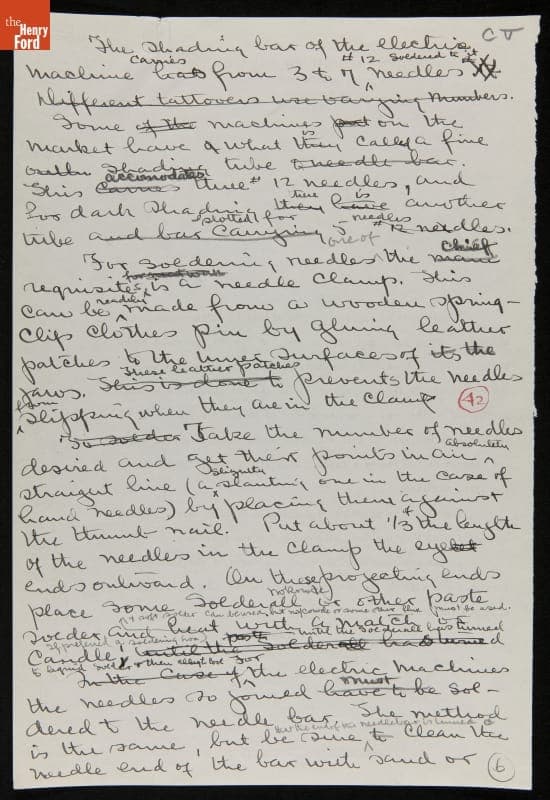 the
Henry
Ford
CT
The shading bar of the electric
carries #12 soldered to it
machine has from 3 to 7 needles
Different tattooers use varying numbers.
Some of the machines put on the
market have what they call a fine
shading tube needle bar.
accomodates
This carries three #12 needles, and
there is
for dark shading they have another
slotted for needles
tube and bar carrying 5 #12 needles.
one of chief
For soldering needles the main
requisites is a needle clamp. This
readily
can be made from a wooden spring-
clip clothes pin by gluing leather
patches to the inner surfaces of its the
These leather patches
jaws. This is done to prevents the needles
from
slipping when they are in the clamp
42
To solder Take the number of needles
absolutely
desired and get their points in an
slightly
straight line (a slanting one in the case of
hand needles) by placing them against
the thumb nail. Put about 1/3 of the length
of the needles in the clamp the eye
ends outward. On these projecting ends
nokorode
place some Solderall or other paste
must be used.
solder and heat with a match or
until the solderall has turned
candle, until the solderall has turned
to liquid
For
In the case of the electric machines
must
the needles so joined have to be sol-
dered to the needle bar. The method
is the same, but be sure to clean the
needle end of the bar with sand or
6